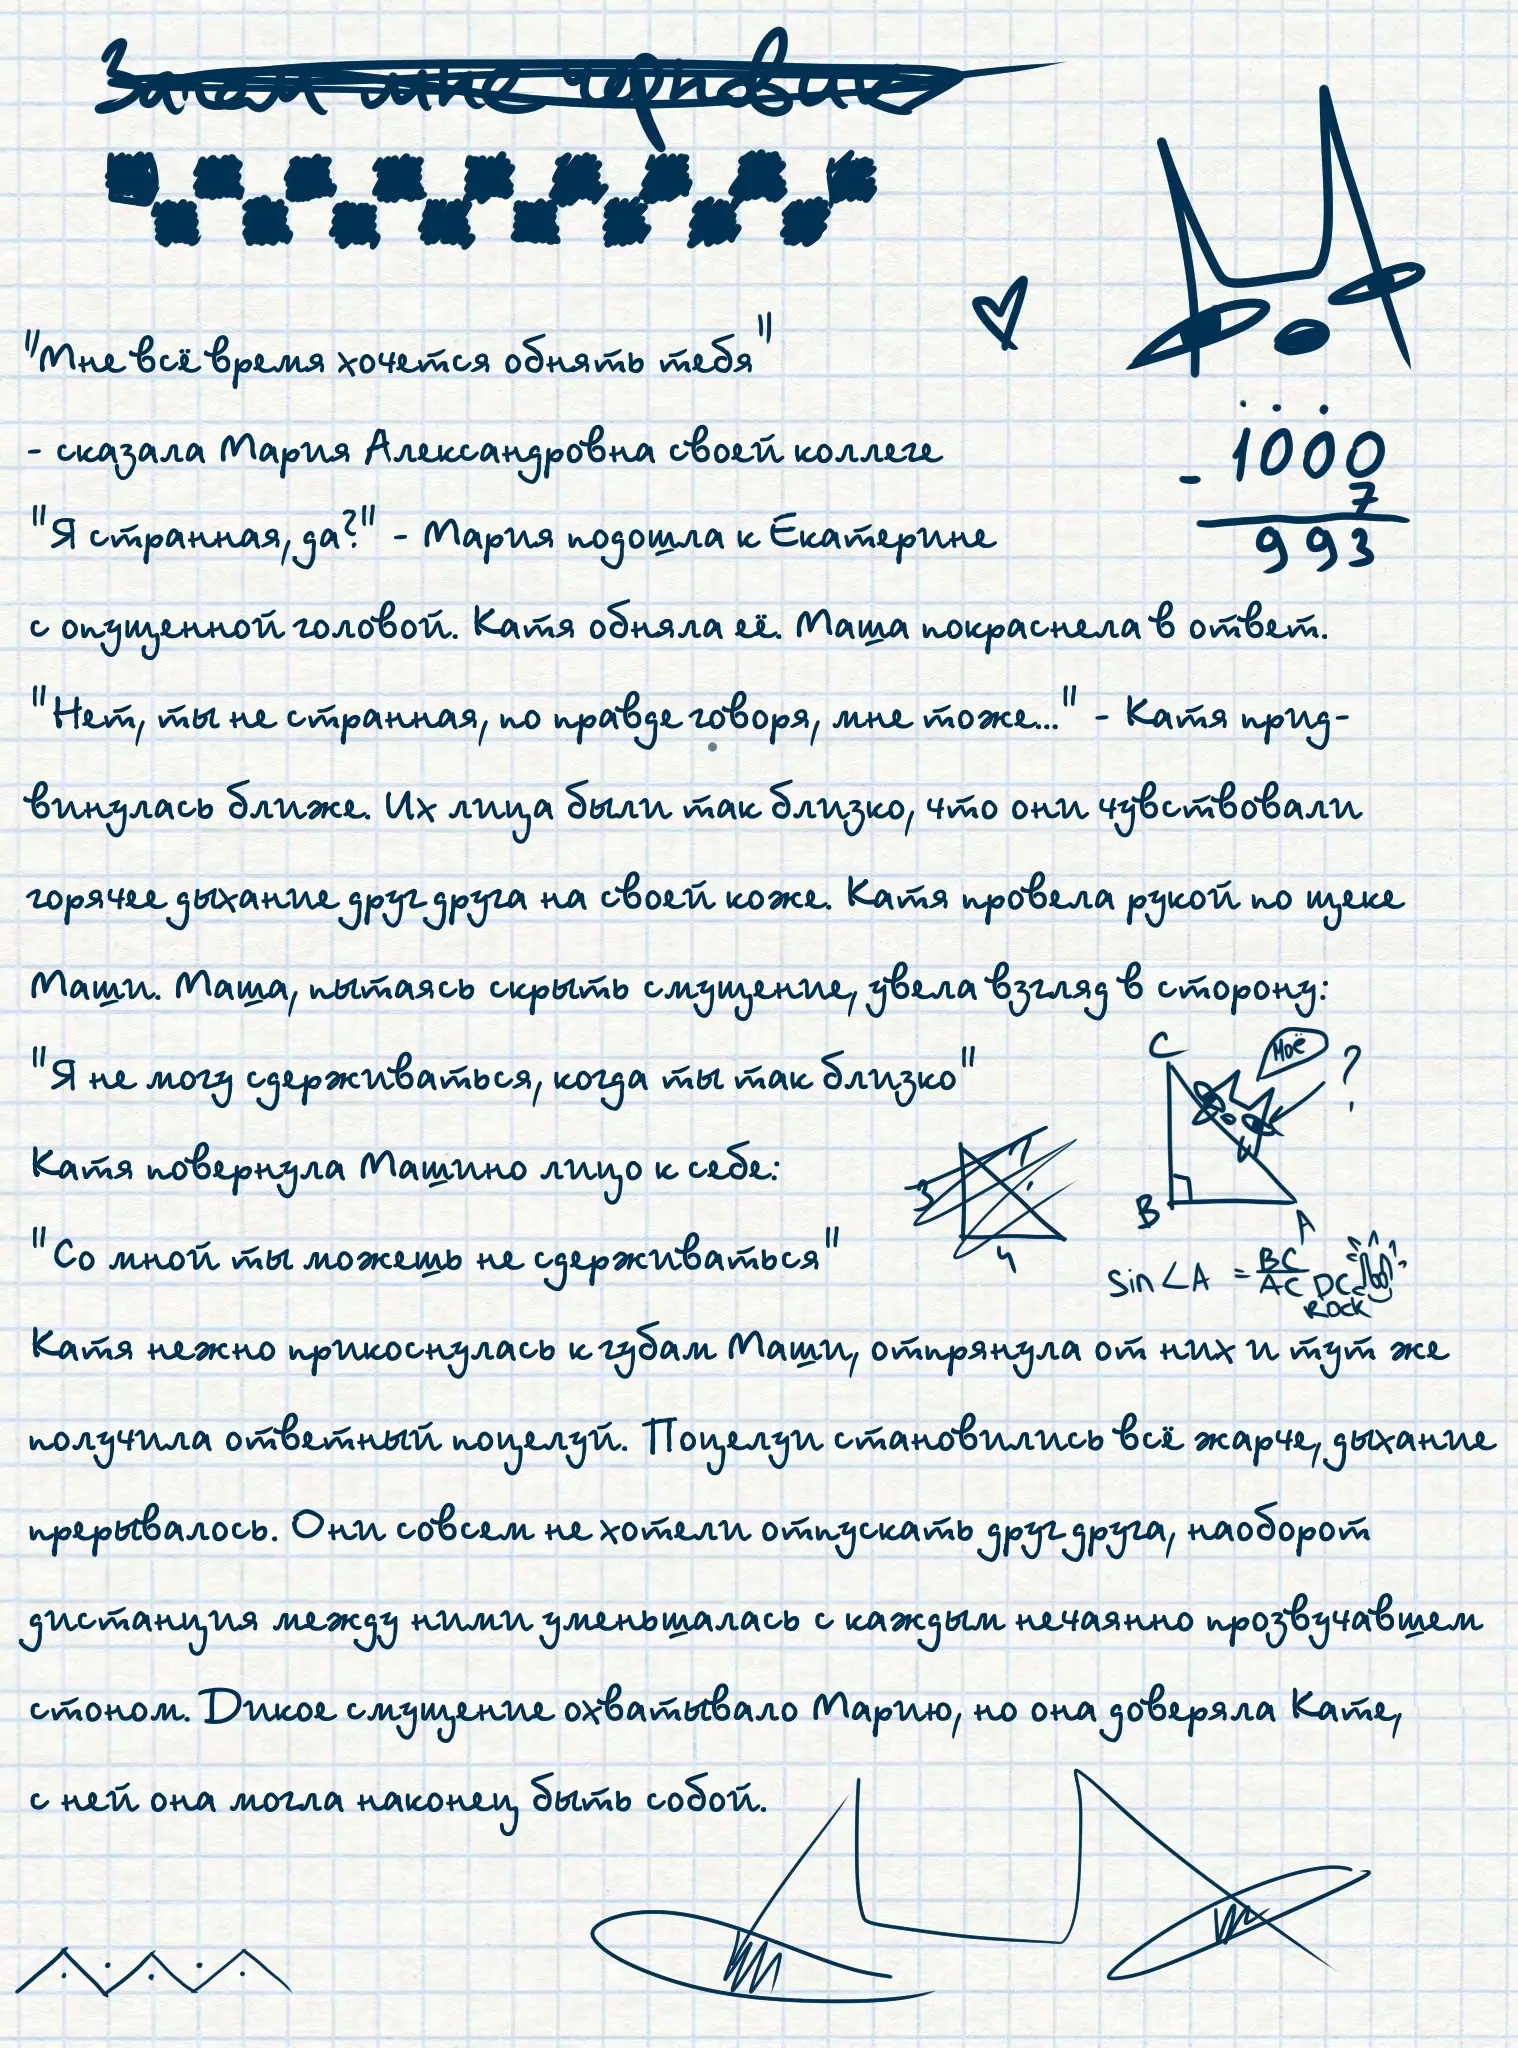 Зачем мне черновик
"Мне всё время хочется обнять тебя"
- сказала Мария Александровна своей коллеге
1000
- 7
993
"Я странная, да?" - Мария подошла к Екатерине
с опущенной головой. Катя обняла её. Маша покраснела в ответ.
"Нет, ты не странная, по правде говоря, мне тоже..." - Катя прид-
винулась ближе. Их лица были так близко, что они чувствовали
горячее дыхание друг друга на своей коже. Катя провела рукой по щеке
Маши. Маша, пытаясь скрыть смущение, увела взгляд в сторону:
"Я не могу сдерживаться, когда ты так близко"
C
Моё
?
Катя повернула Машино лицо к себе:
3
?
4
B
A
"Со мной ты можешь не сдерживаться"
Sin ∠A = BC/AC DC
ROCK
Катя нежно прикоснулась к губам Маши, отпрянула от них и тут же
получила ответный поцелуй. Поцелуи становились всё жарче, дыхание
прерывалось. Они совсем не хотели отпускать друг друга, наоборот
дистанция между ними уменьшалась с каждым нечаянно прозвучавшем
стоном. Дикое смущение охватывало Марию, но она доверяла Кате,
с ней она могла наконец быть собой.